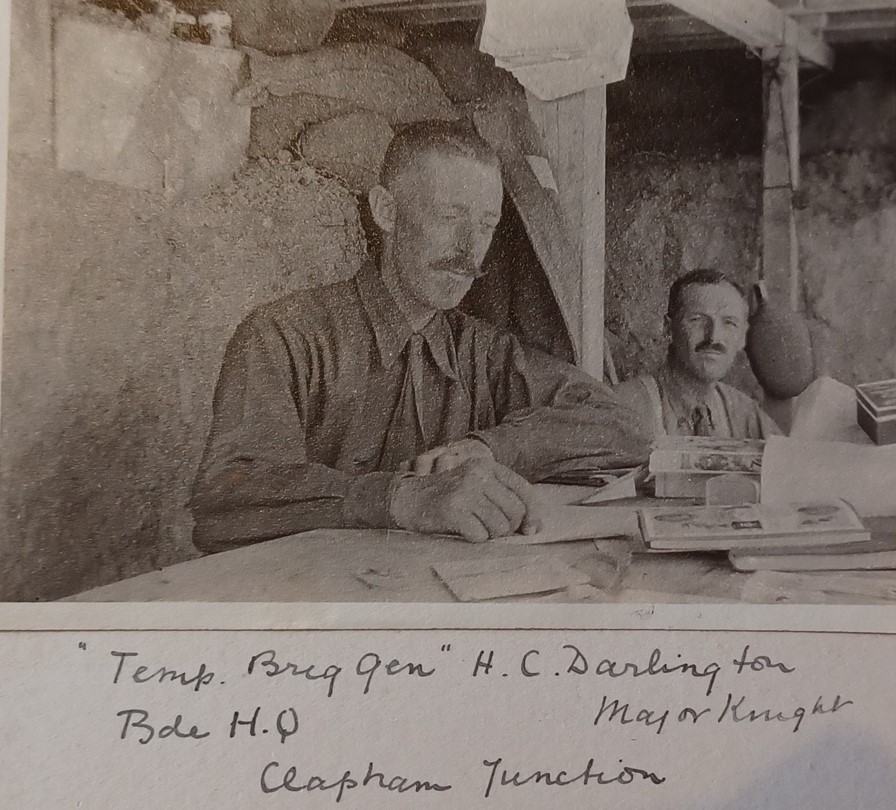 "Temp. Brig Gen" H. C. Darlington
Bde H.Q
Major Knight
Clapham Junction